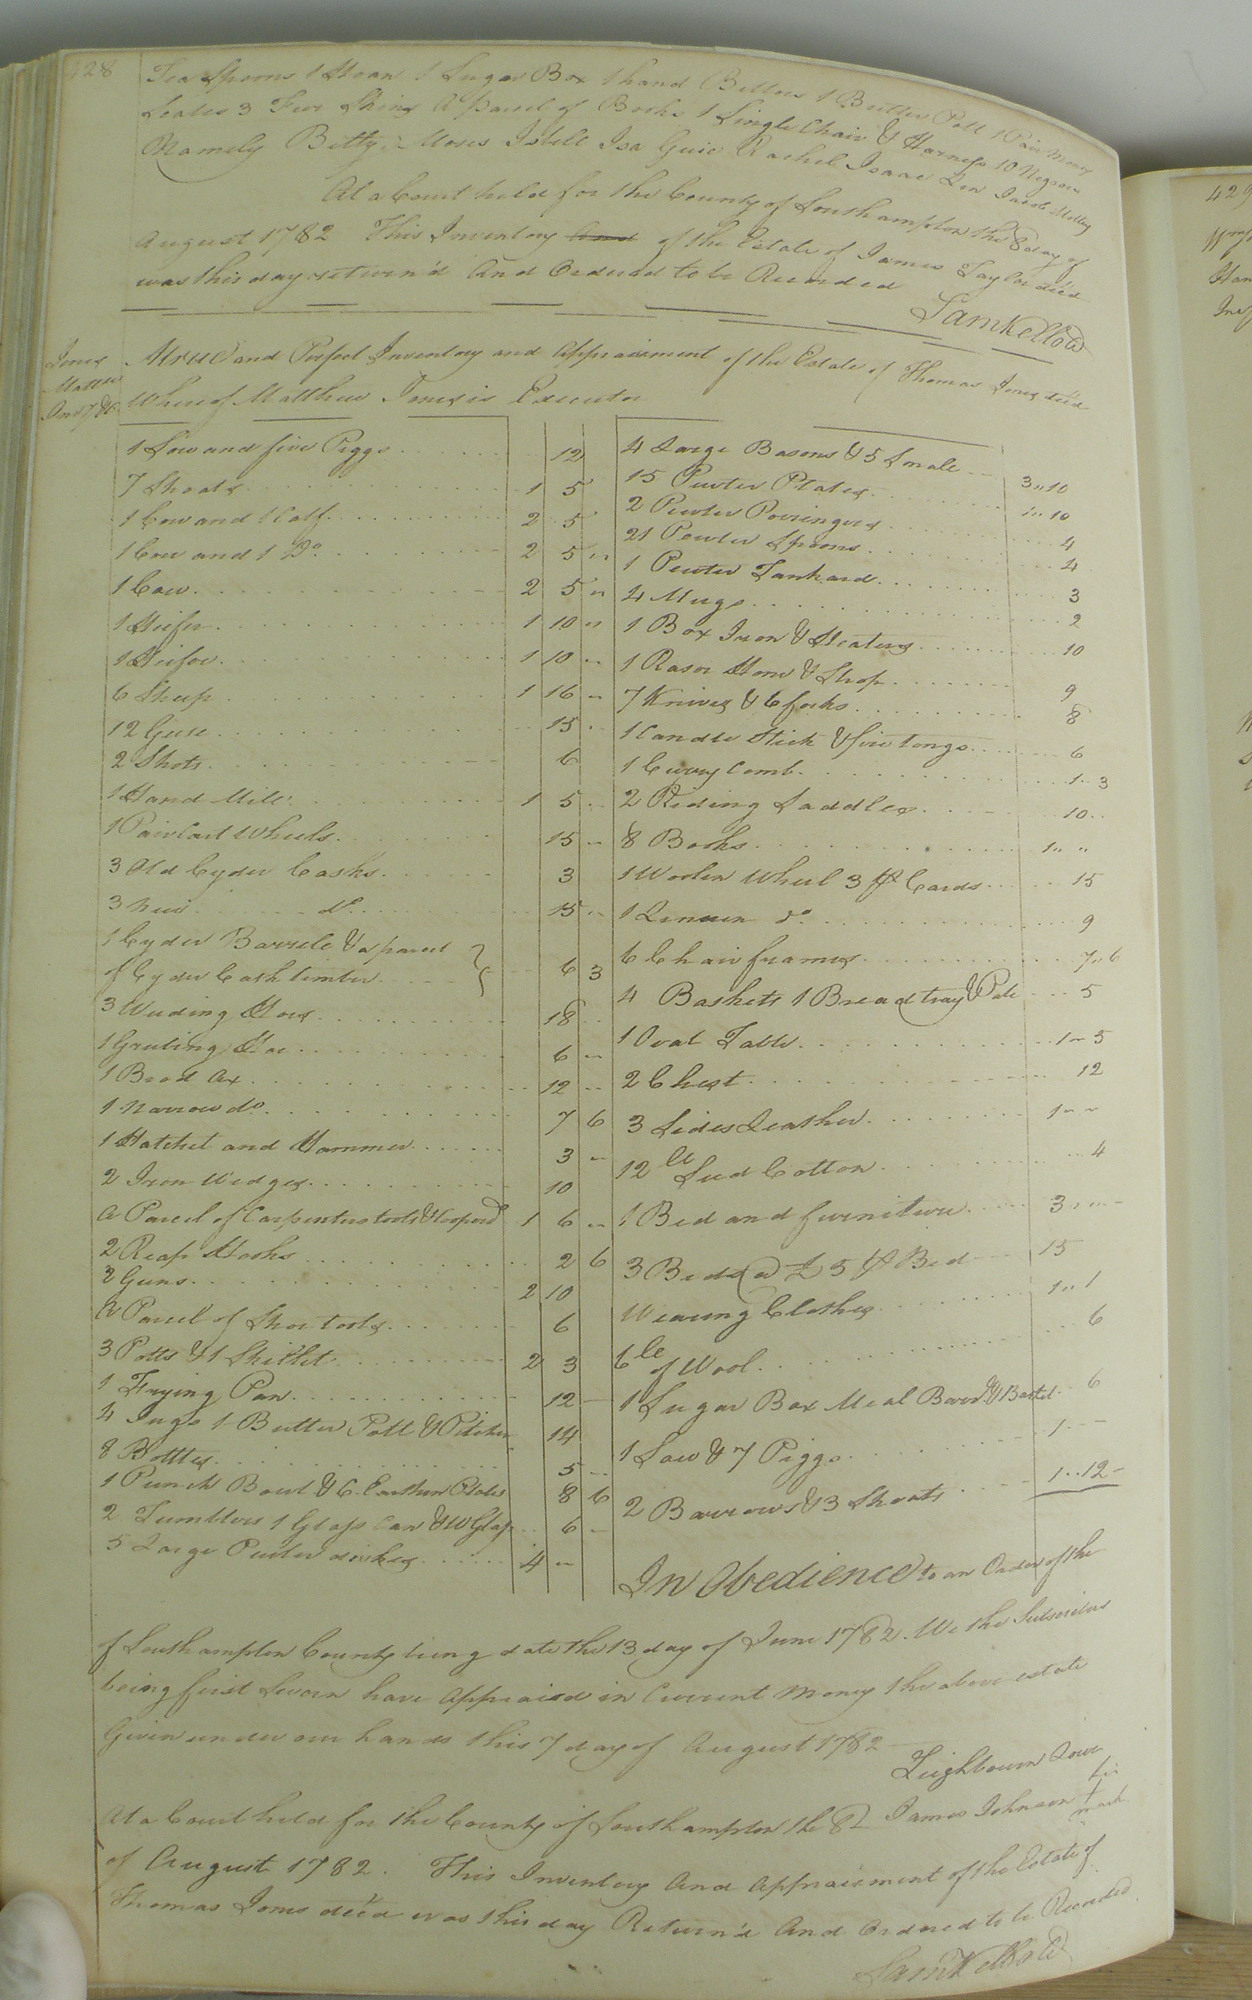 428
Tea Spoons 1 Sugar Box 1 hand Bellows 1 Butter Pott 1 Pair Money
Scales 3 Skins A parcel of Books 1 Single Chair & Harness 10 Negroes
Namely Betty Moses Isbell Isa Rachel Isaac Jacob Milley
At a Court held for the County of Southampton the 8 day of
August 1782 This Inventory and of the Estate of James Taylor dec'd
was this day return'd And Ordered to be Recorded
Sam Kello CC
Jones
Matthew
A true and Perfect Inventory and Appraisment of the Estate of Thomas Jones dec'd
Whereof Matthew Jones is Executor
1 Sow and five Piggs 12
7 Shoats 1 5
1 Cow and 1 Calf 2 5
1 Cow and 1 Do 2 5 "
1 Cow 2 5 "
1 Heifer 1 10 "
1 Heifer 1 10 "
6 Sheep 1 16 "
12 Geese 15
2 Shots 6
1 Hand Mill 1 5
1 Pair Cart Wheels 15 "
3 Old Cyder Casks 3
3 New do 15
1 Cyder Barrele & a parcel
of Cyder Cask timber 6 3
3 Weeding Hoes 18
1 Grubing Hoe 6 "
1 Brod Ax 12 "
1 Narrow do 7 6
1 Hatchet and Hammer 3 "
2 Iron Wedges 10
A Parcel of Carpenters tools & Coopers 1 6 "
2 Reap Hooks 2 6
2 Guns 2 10
A Parcel of Shoe tools 6
3 Potts & 1 Skillet 2 3
1 Frying Pan 12
4 Jugs 1 Butter Pott & Pitcher 14
8 Bottles 5
1 Punch Bowl & 6 Earthen Plates 8 6
2 Tumblers 1 Glass Can & W Glass 6
5 Large Pewter dishes 4 "
4 Large Basons & 5 Smale 3 " 10
15 Pewter Plates 1 " 10
2 Pewter Poringers 4
21 Pewter Spoons 4
1 Pewter Tankard 3
4 Mugs 2
1 Box Iron & Heaters 10
1 Rasor Hone & Strop 9
7 Knives & 6 forks 8
1 Candle Stick & fire tongs 6
1 Currycomb 1 " 3
2 Riding Saddles 10
8 Books 1 " "
1 Woolen Wheel 3 pr Cards 15
1 Linnen do 9
6 Chair frames 7 " 6
4 Baskets 1 Bread tray & Pale 5
1 Oval Table 1 " 5
2 Chest 12
3 Sides Leather 1 " "
12 lb Seed Cotton 4
1 Bed and furniture 3 " "
3 Beds @ £5 pr Bed 15
Wearing Clothes 1 " 1
6 lb of Wool 6
1 Sugar Box Meal Barrl & Basket 6
1 Sow & 7 Piggs 1
2 Barrows & 3 Shoats 1 " 12
In Obedience to an Order of the
of Southampton County being date the 13 day of June 1782. We the Subscribers
being first Sworn have Appraised in Current Money the above estate
Given under our hands this 7 day of August 1782
his
James Johnson +
mark
At a Court held for the County of Southampton the 8
of August 1782. This Inventory And Appraisment of the Estate of
Thomas Jones dec'd was this day Return'd And Ordered to be Recorded
Sam Kello CC
429